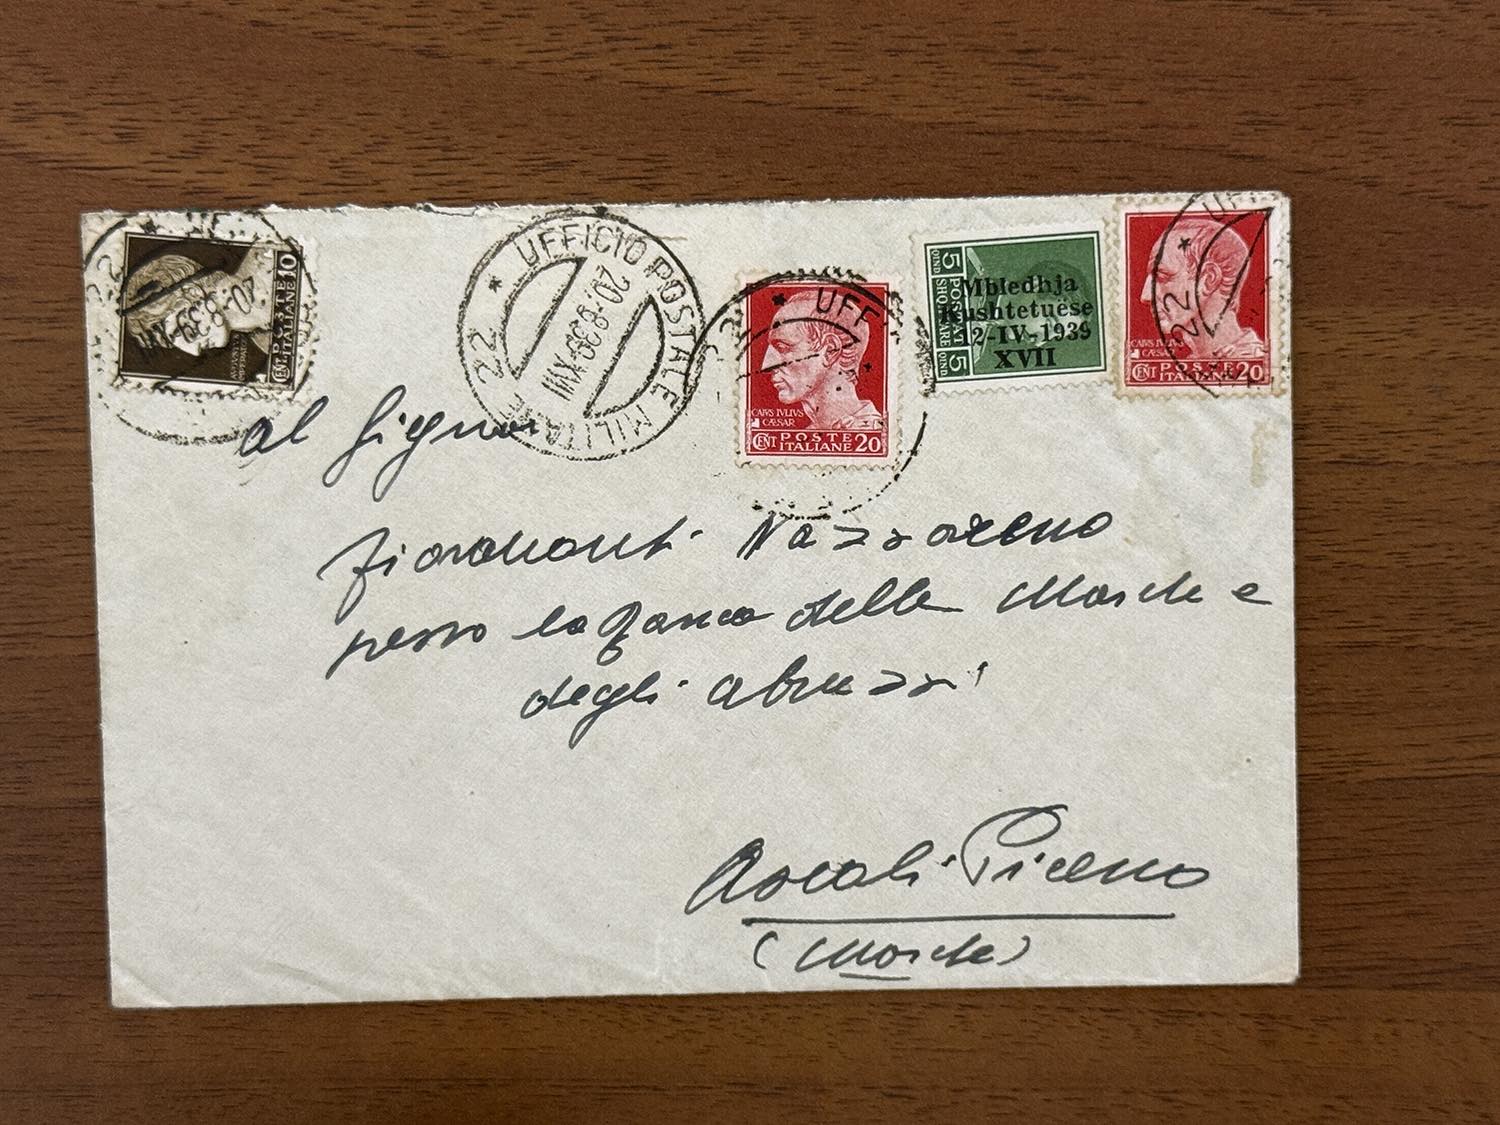 10
CENT. POSTE
ITALIANE
AVGVSTVS
20-8-39 XVII
22 * UFFICIO POSTALE MILITARE
20-8-39-XVII
22 * UFF
CAIVS IVLIVS
CÆSAR
CENT POSTE
ITALIANE 20
5 POSTAT 5
QIND SHQIPTARE QIND
Mbledhja
Kushtetuëse
12-IV-1939
XVII
22 * UFF
CAIVS IVLIVS
CÆSAR
CENT POSTE
ITALIANE 20
Al Signor
Fioravanti Nazzareno
presso la Banca delle Marche e
degli Abruzzi
Ascoli Piceno
(Marche)